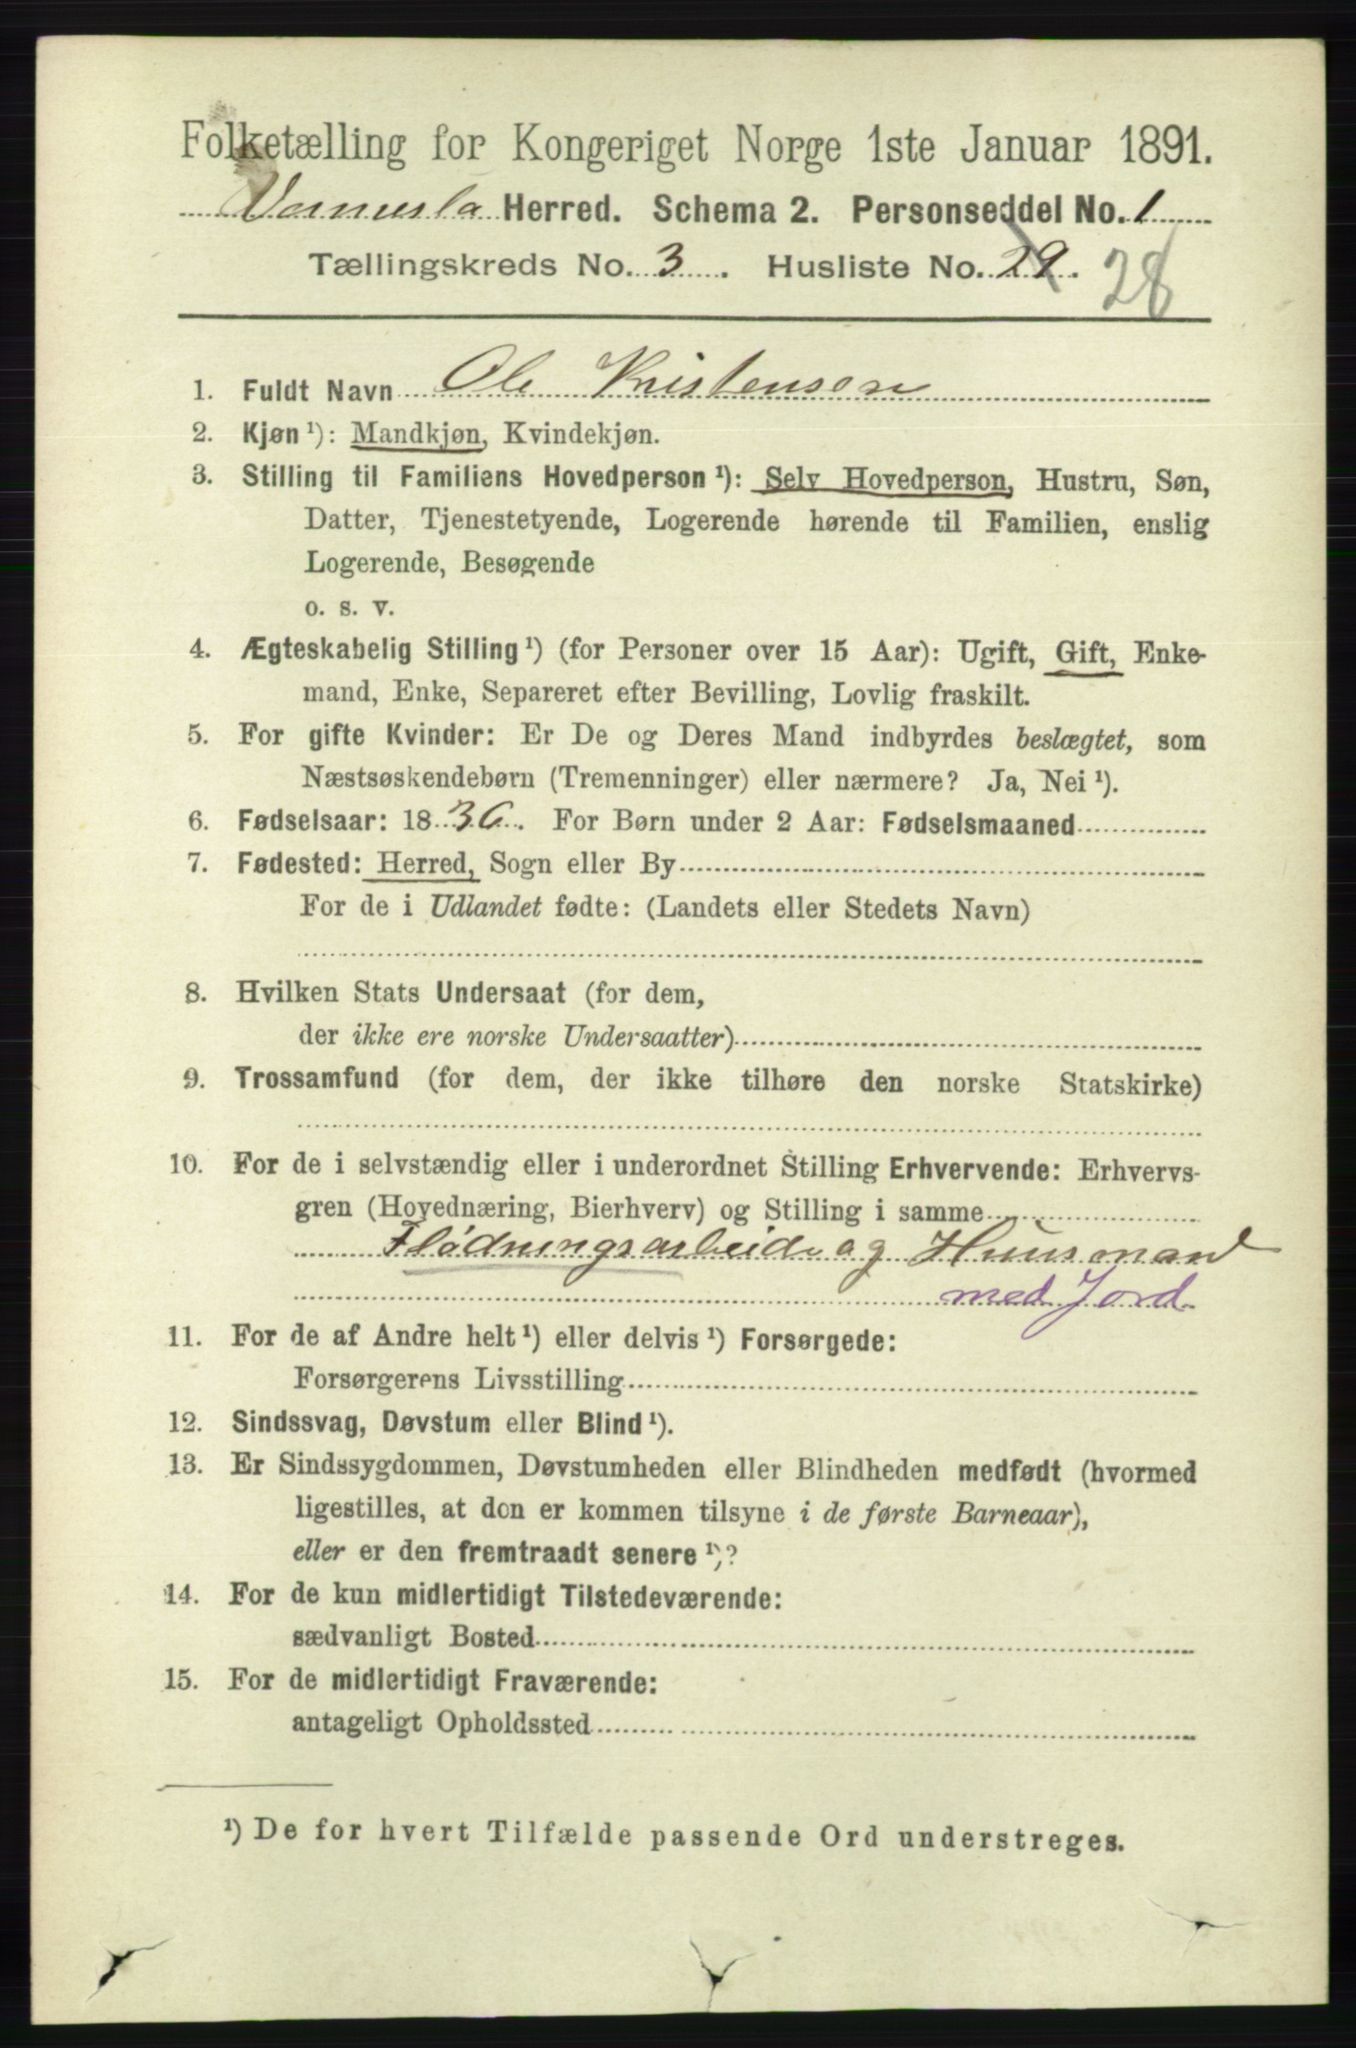 Folketælling for Kongeriget Norge 1ste Januar 1891.
Vennesla Herred. Schema 2. Personseddel No. 1
Tællingskreds No. 3. Husliste No. 29. 28
1. Fuldt Navn Ole Kristensen
2. Kjøn ¹): Mandkjøn, Kvindekjøn.
3. Stilling til Familiens Hovedperson ¹): Selv Hovedperson, Hustru, Søn,
Datter, Tjenestetyende, Logerende hørende til Familien, enslig
Logerende, Besøgende
o. s. v.
4. Ægteskabelig Stilling ¹) (for Personer over 15 Aar): Ugift, Gift, Enke-
mand, Enke, Separeret efter Bevilling, Lovlig fraskilt.
5. For gifte Kvinder: Er De og Deres Mand indbyrdes beslægtet, som
Næstsøskendebørn (Tremenninger) eller nærmere? Ja, Nei ¹).
6. Fødselsaar: 1836. For Børn under 2 Aar: Fødselsmaaned
7. Fødested: Herred, Sogn eller By
For de i Udlandet fødte: (Landets eller Stedets Navn)
8. Hvilken Stats Undersaat (for dem,
der ikke ere norske Undersaatter)
9. Trossamfund (for dem, der ikke tilhøre den norske Statskirke)
10. For de i selvstændig eller i underordnet Stilling Erhvervende: Erhvervs-
gren (Hovednæring, Bierhverv) og Stilling i samme
Flødningsarbeide og Huusmand
med Jord
11. For de af Andre helt ¹) eller delvis ¹) Forsørgede:
Forsørgerens Livsstilling
12. Sindssvag, Døvstum eller Blind ¹).
13. Er Sindssygdommen, Døvstumheden eller Blindheden medfødt (hvormed
ligestilles, at den er kommen tilsyne i de første Barneaar),
eller er den fremtraadt senere ¹)?
14. For de kun midlertidigt Tilstedeværende:
sædvanligt Bosted
15. For de midlertidigt Fraværende:
antageligt Opholdssted
¹) De for hvert Tilfælde passende Ord understreges.